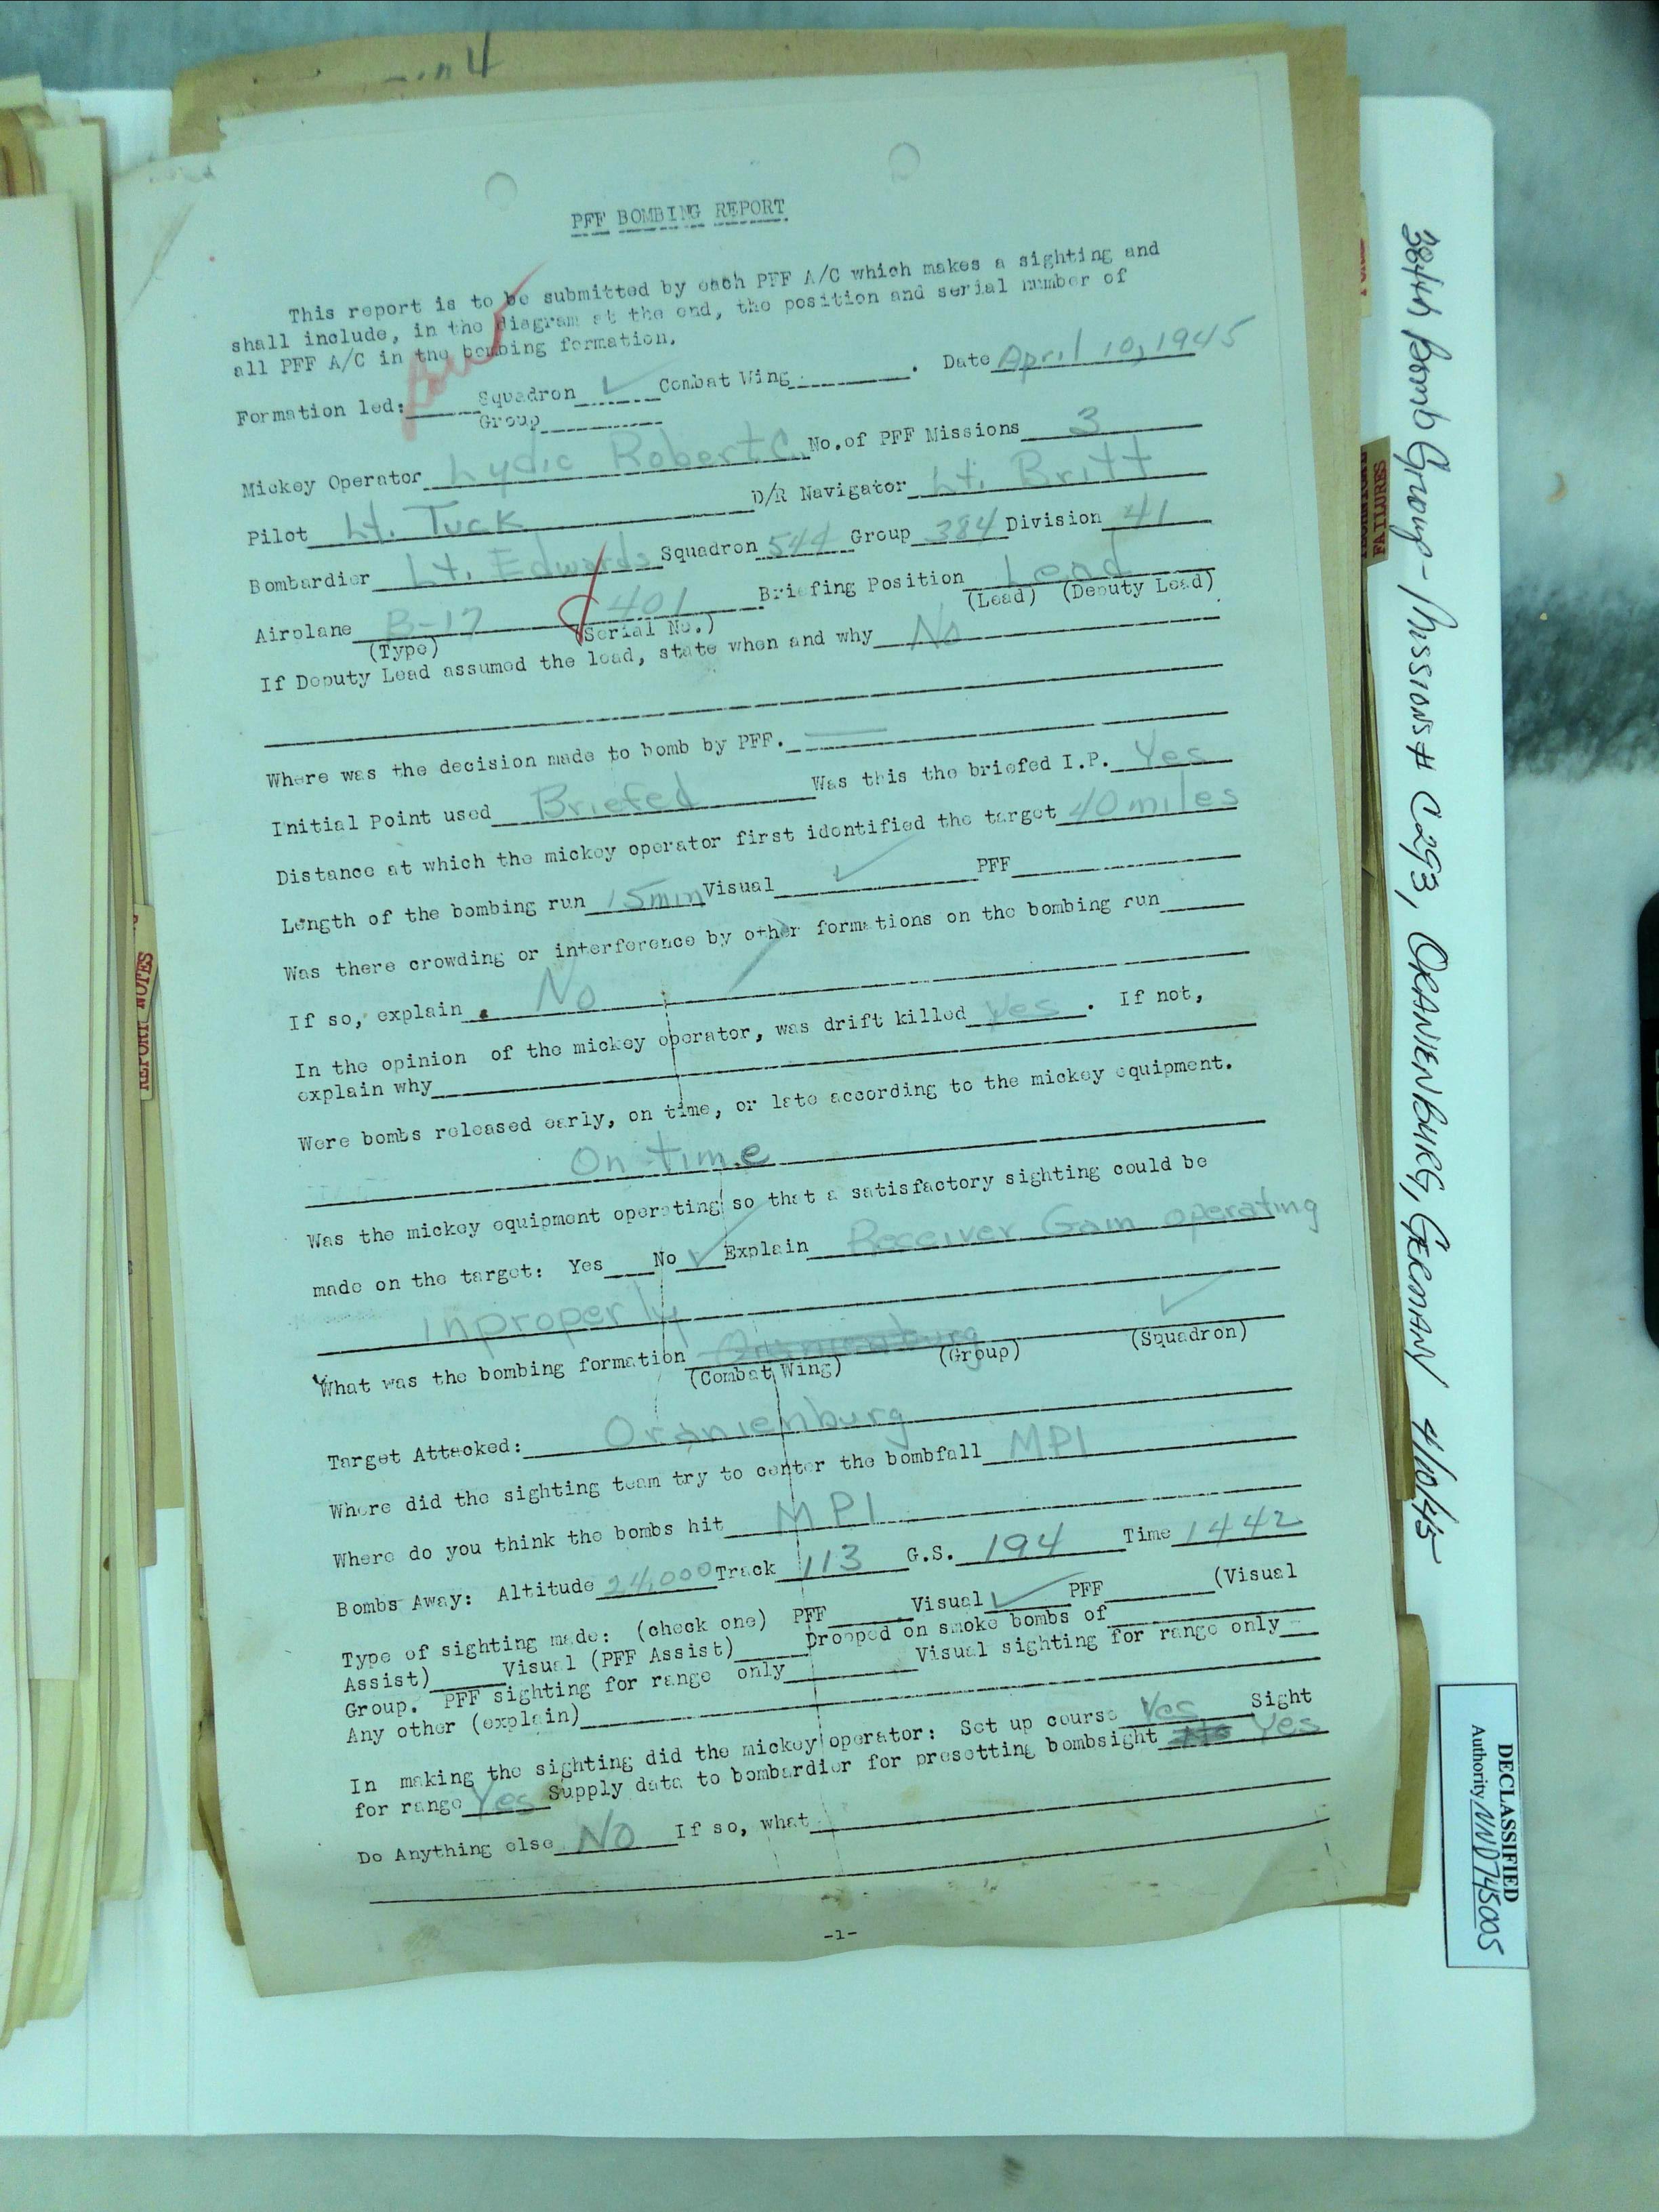 PFF BOMBING REPORT
This report is to be submitted by each PFF A/C which makes a sighting and
shall include, in the diagram at the end, the position and serial number of
all PFF A/C in the bombing formation.
Formation led: Squadron ✓ Combat Wing . Date April 10, 1945
Group
Mickey Operator Lydic Robert C. No. of PFF Missions 3
Pilot Lt. Tuck D/R Navigator Lt. Britt
Bombardier Lt. Edwards Squadron 544 Group 384 Division 41
Airplane B-17 401 Briefing Position Lead
(Type) (Serial No.) (Lead) (Deputy Lead)
If Deputy Lead assumed the lead, state when and why No
Where was the decision made to bomb by PFF. —
Initial Point used Briefed Was this the briefed I.P. Yes
Distance at which the mickey operator first identified the target 40 miles
Length of the bombing run 15min Visual ✓ PFF
Was there crowding or interference by other formations on the bombing run
If so, explain No
In the opinion of the mickey operator, was drift killed Yes . If not,
explain why
Were bombs released early, on time, or late according to the mickey equipment.
On time
Was the mickey equipment operating so that a satisfactory sighting could be
made on the target: Yes No ✓ Explain Receiver Gain operating
inproperly
What was the bombing formation Oranienburg ✓
(Combat Wing) (Group) (Squadron)
Target Attacked: Oranienburg
Where did the sighting team try to center the bombfall MPI
Where do you think the bombs hit MPI
Bombs Away: Altitude 24,000 Track 113 G.S. 194 Time 1442
Type of sighting made: (check one) PFF Visual ✓ PFF (Visual
Assist) Visual (PFF Assist) Dropped on smoke bombs of
Group. PFF sighting for range only Visual sighting for range only
Any other (explain)
In making the sighting did the mickey operator: Set up course Yes Sight
for range Yes Supply data to bombardier for presetting bombsight No Yes
Do Anything else No If so, what
-1-
384th Bomb Group - Missions# C293, ORANIENBURG, GERMANY 4/10/45
DECLASSIFIED
Authority NND745005
REPORT NOTES
FAILURES